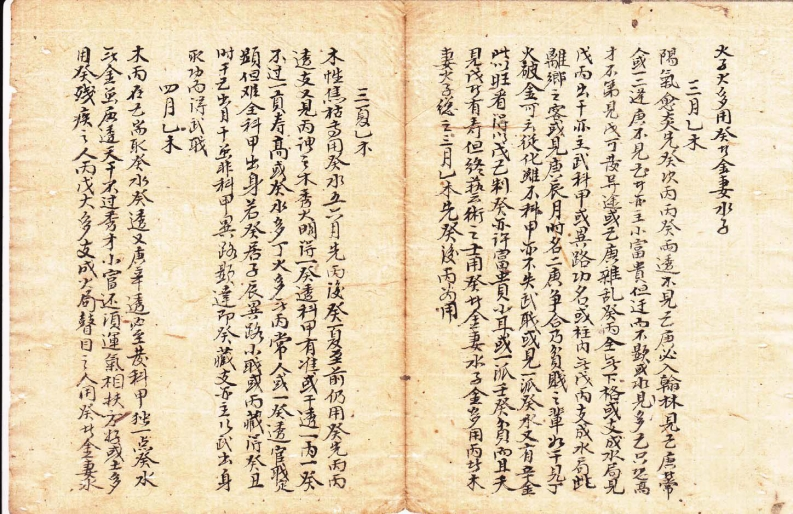 火子火多用癸廿金妻水子
三月乙木
陽氣愈炎先癸次丙丙癸兩透不見己庚必入翰林見己庚常
人或一透庚不見己廿亦主小富貴但迂而不顯或水見多己只恐高
才不第見戊可發异途或己庚雜乱癸丙全無下格或支成水局見
戊丙出干亦主武科甲或異路功名或柱内無戊丙支成水局此
離鄉之客或見庚辰月時名二庚争合乃貧賤之輩如干見丁
火破金可云從化雖不科甲亦不失武職或見一派癸水又有辛金
此以旺看得以戊己制癸亦許富貴小耳或一派壬癸貧而且夭
見戊廿有壽但終藝術之士用癸廿金妻水子金多用丙廿木
妻火子總之三月乙木先癸後丙為用
三夏乙木
木性焦枯當用癸水五六月先丙後癸夏至前仍用癸先丙丙
透支又見丙神之木秀火明得一癸透科甲有准或干透一丙一癸
不过一貢壽高或癸水多丁火多無丙常人或一癸透官職定
顯但难全科甲出身若癸居子辰異路小職或丙藏得癸丑
時于己出月干並非科甲異路顯達即癸藏支亦主以武出身
取功而得武職
四月乙木
木丙在己崙取癸水癸透又庚辛透必至發科甲独一点癸水
無金並庚透天干不过秀才小官还須運氣相扶方好或土多
困癸殘疾之人丙戊太多支成火局瞽目之人用癸廿金妻水